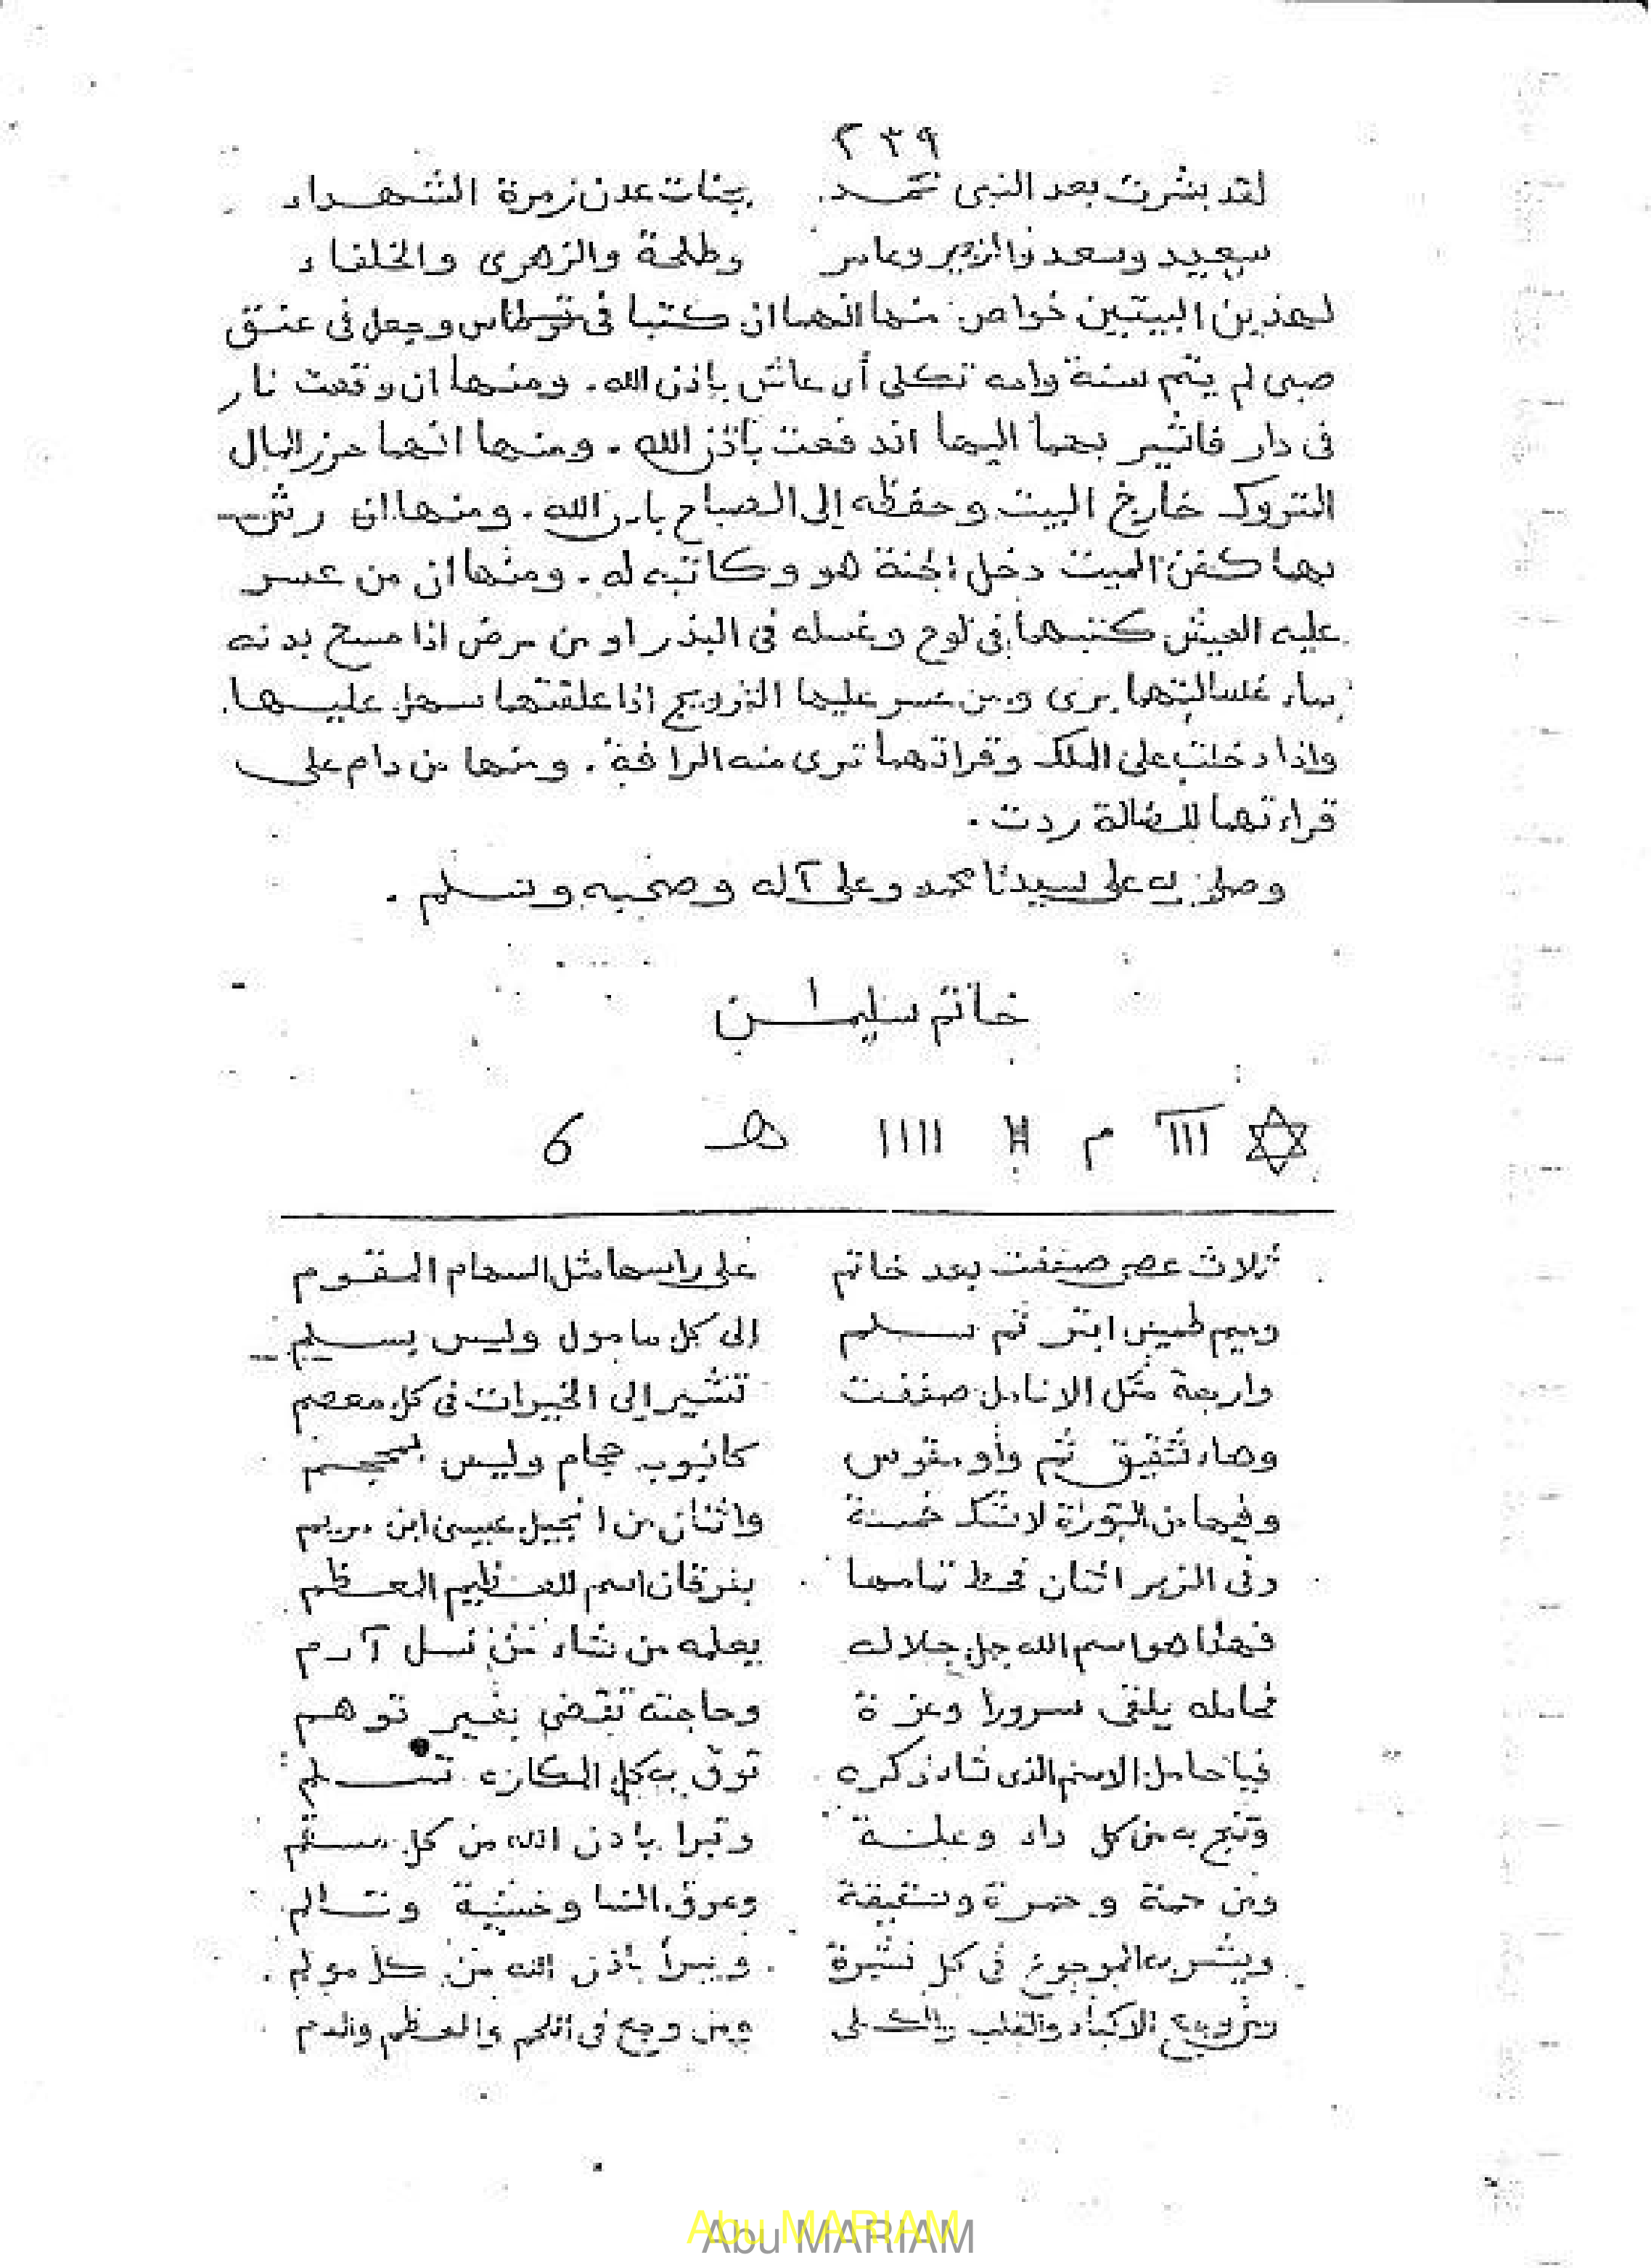 ٢٣٩
لقد بشرت بعد النبى محمد بجنات عدن زمرة الشهداء
سعيد وسعد والزبير وعامر وطلحة والزهرى والخلفاء
لهذين البيتين خواص منها انهما ان كتبا فى قرطاس وجعل فى عنق
صبى لم يتم سنة وامه تكلى أى عاش باذن الله. ومنها ان وقعت نار
فى دار فاشير بهما اليها اندفعت بأذن الله. ومنها انهما حرز المال
المتروك خارج البيت وحفظه إلى الصباح باذن الله. ومنها ان رش
بها كفن الميت دخل الجنة هو وكاتبه له. ومنها ان من عسر
عليه العيش كتبهما فى لوح وغسله فى البذر او من مرض اذا مسح بدنه
بماء غسالتهما برى ومن عسر عليها التزويج اذا علقتهما سهل عليها.
واذا دخلت على الملك وقراتهما ترى منه الرافة. ومنها من دام على
قراءتهما للضالة ردت.
وصلى الله على سيدنا محمد وعلى آله وصحبه وسلم.
خاتم سليمان
م اااا هـ 6
ثلاث عصى صففت بعد خاتم على راسها مثل السهام المقوم
وميم طميس ابتر ثم سلم الى كل مامول وليس بسلم
واربعة مثل الانامل صففت تشير إلى الخيرات فى كل معصم
وهاء شقيق ثم واو مقوس كانبوب حجام وليس بمحجم
وفيها من التوراة لا شك خمسة واثنان من انجيل عيسى ابن مريم
وفى الزبر اثنان فحط تمامها بفرقان اسم للعظيم المعظم
فهذا هو اسم الله جل جلاله يعلمه من شاء من نسل آدم
فحامله يلقى سرورا وعزة وحاجته تقضى بغير توهم
فيا حامل الاسم الذى شاد ذكره توق به كل المكاره تسلم
وتنج به من كل داء وعلة وتبرا باذن الله من كل مسقم
ومن حمة و حمرة وشقيقة وعرق النسا وخشية
فى كل نشرة ويبرأ بأذن الله من كل مولم
الاكباد والقلب والكلى ومن وجع فى اللحم والعظم والدم
Abu MARIAM
Abu MARIAM